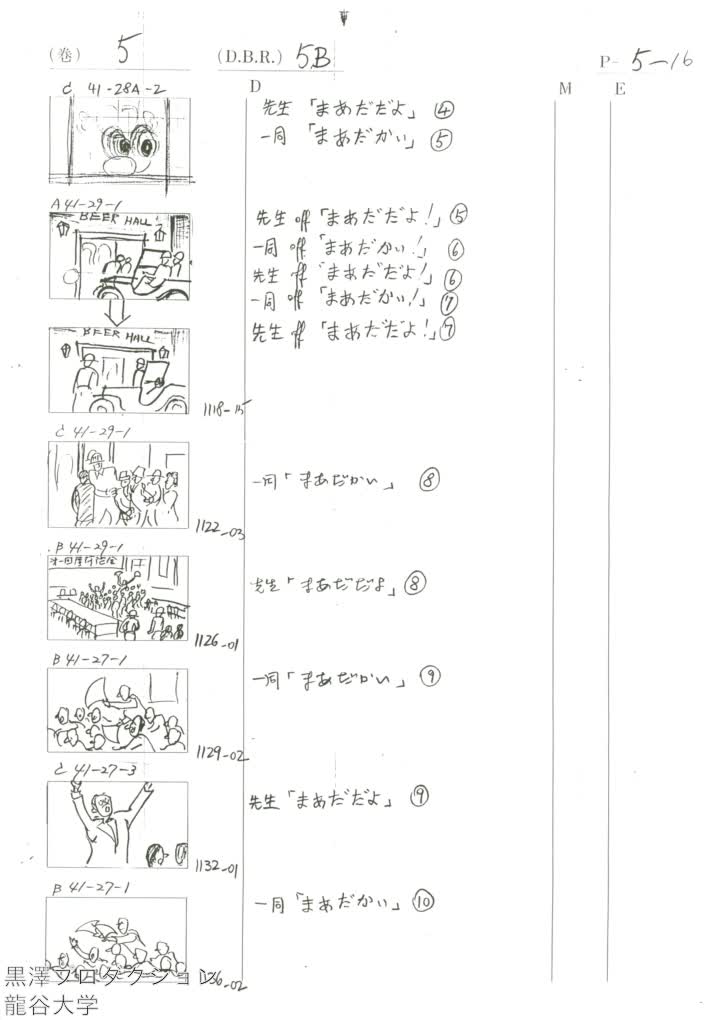 (巻) 5 (D.B.R.) 5B P- 5-16
D M E
C 41-28A-2
先生「まあだだよ」④
一同「まあだかい」⑤
A 41-29-1
BEER HALL
先生 off「まあだだよ!」⑤
一同 off「まあだかい!」⑥
先生 off「まあだだよ!」⑥
一同 off「まあだかい!」⑦
先生 off「まあだだよ!」⑦
BEER HALL
1118-15
C 41-29-1
一同「まあだかい」⑧
1122-03
B 41-29-1
先生「まあだだよ」⑧
1126-01
B 41-27-1
一同「まあだかい」⑨
1129-02
C 41-27-3
先生「まあだだよ」⑨
1132-01
B 41-27-1
一同「まあだかい」⑩
黒澤プロダクション
龍谷大学